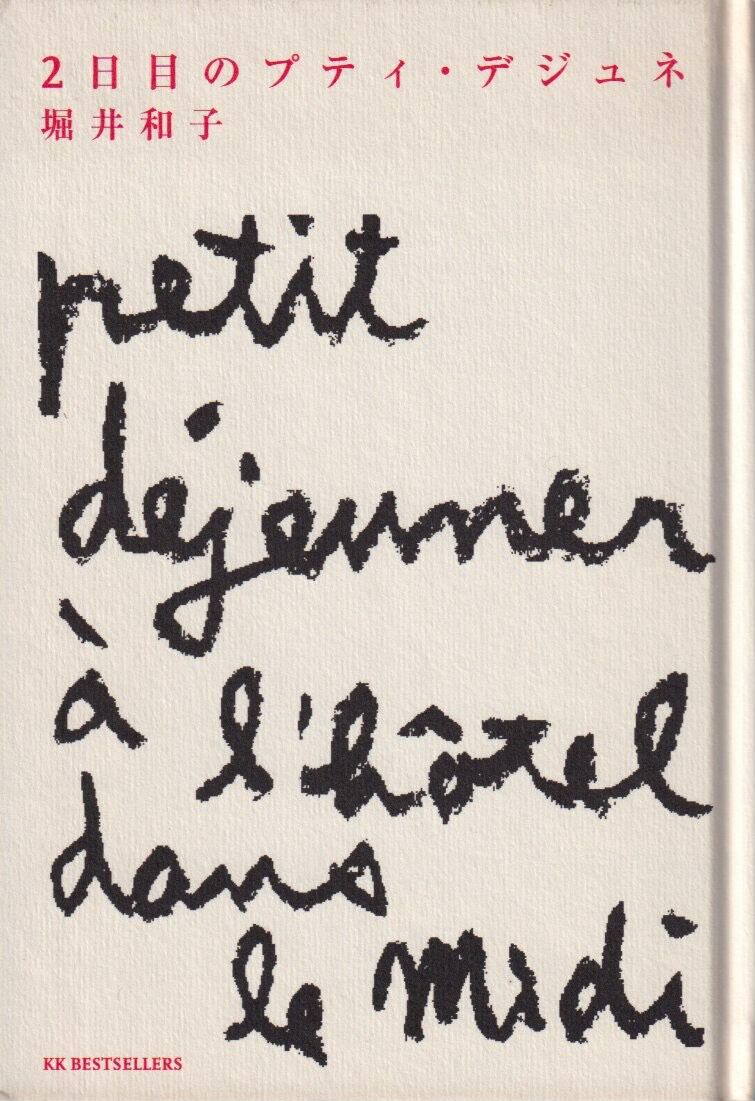 2日目のプティ・デジュネ
堀井和子
petit
déjeuner
à l'hôtel
dans
le midi
KK BESTSELLERS